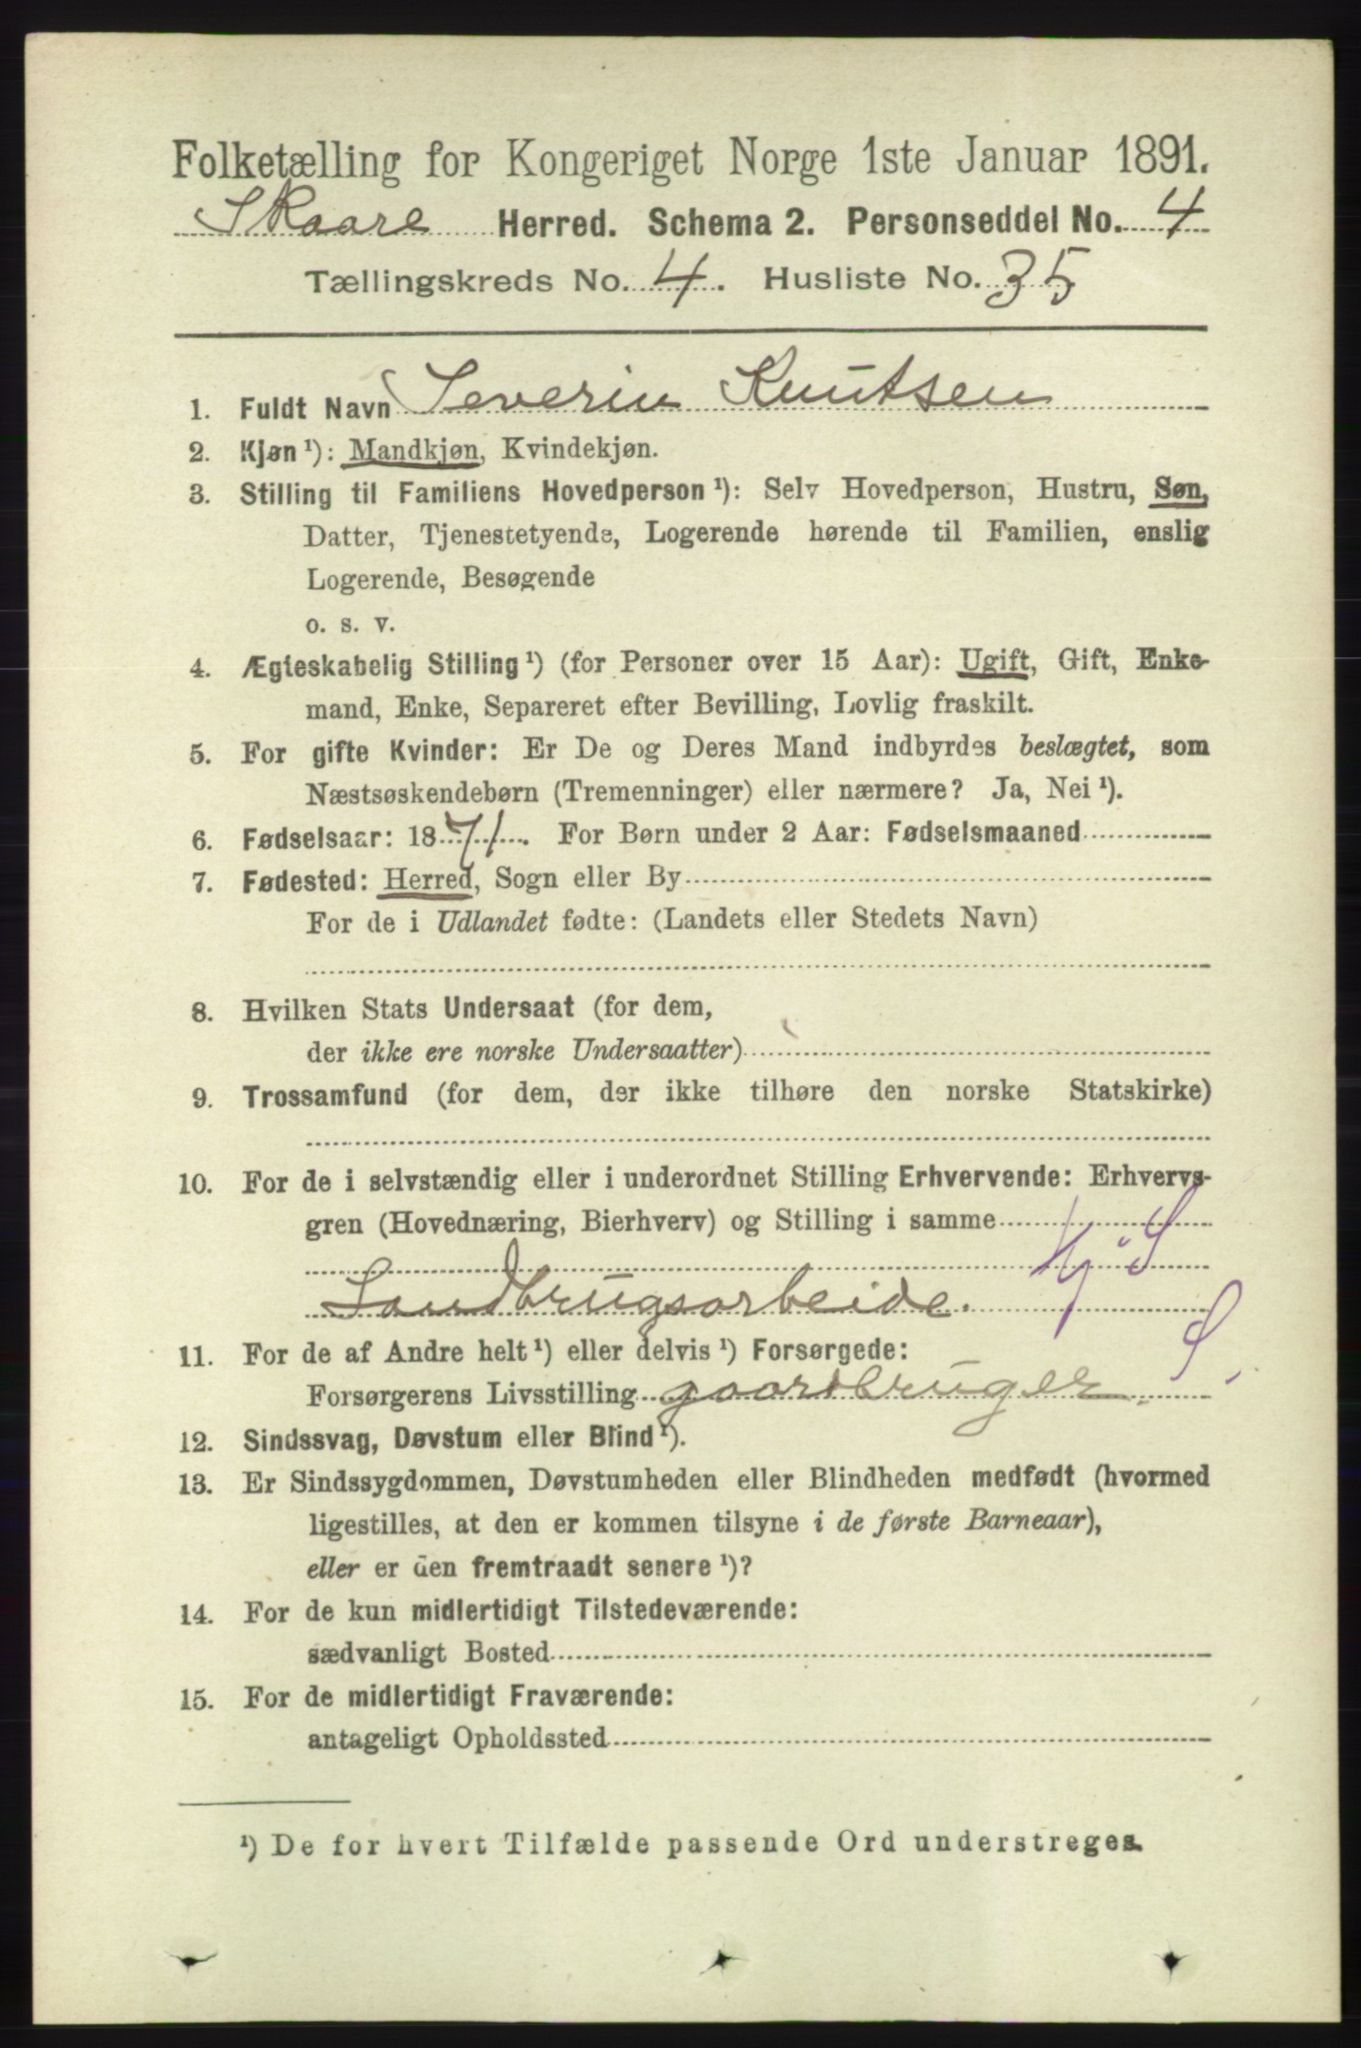 Folketælling for Kongeriget Norge 1ste Januar 1891.
Skaare Herred. Schema 2. Personseddel No. 4
Tællingskreds No. 4. Husliste No. 35
1. Fuldt Navn Severin Knutsen
2. Kjøn ¹): Mandkjøn, Kvindekjøn.
3. Stilling til Familiens Hovedperson ¹): Selv Hovedperson, Hustru, Søn,
Datter, Tjenestetyende, Logerende hørende til Familien, enslig
Logerende, Besøgende
o. s. v.
4. Ægteskabelig Stilling ¹) (for Personer over 15 Aar): Ugift, Gift, Enke-
mand, Enke, Separeret efter Bevilling, Lovlig fraskilt.
5. For gifte Kvinder: Er De og Deres Mand indbyrdes beslægtet, som
Næstsøskendebørn (Tremenninger) eller nærmere? Ja, Nei ¹).
6. Fødselsaar: 1871. For Børn under 2 Aar: Fødselsmaaned
7. Fødested: Herred, Sogn eller By
For de i Udlandet fødte: (Landets eller Stedets Navn)
8. Hvilken Stats Undersaat (for dem,
der ikke ere norske Undersaatter)
9. Trossamfund (for dem, der ikke tilhøre den norske Statskirke)
10. For de i selvstændig eller i underordnet Stilling Erhvervende: Erhvervs-
gren (Hovednæring, Bierhverv) og Stilling i samme
Landbrugsarbeide.
11. For de af Andre helt ¹) eller delvis ¹) Forsørgede: S.
Forsørgerens Livsstilling gaardbruger.
12. Sindssvag, Døvstum eller Blind ¹).
13. Er Sindssygdommen, Døvstumheden eller Blindheden medfødt (hvormed
ligestilles, at den er kommen tilsyne i de første Barneaar),
eller er den fremtraadt senere ¹)?
14. For de kun midlertidigt Tilstedeværende:
sædvanligt Bosted
15. For de midlertidigt Fraværende:
antageligt Opholdssted
¹) De for hvert Tilfælde passende Ord understreges.